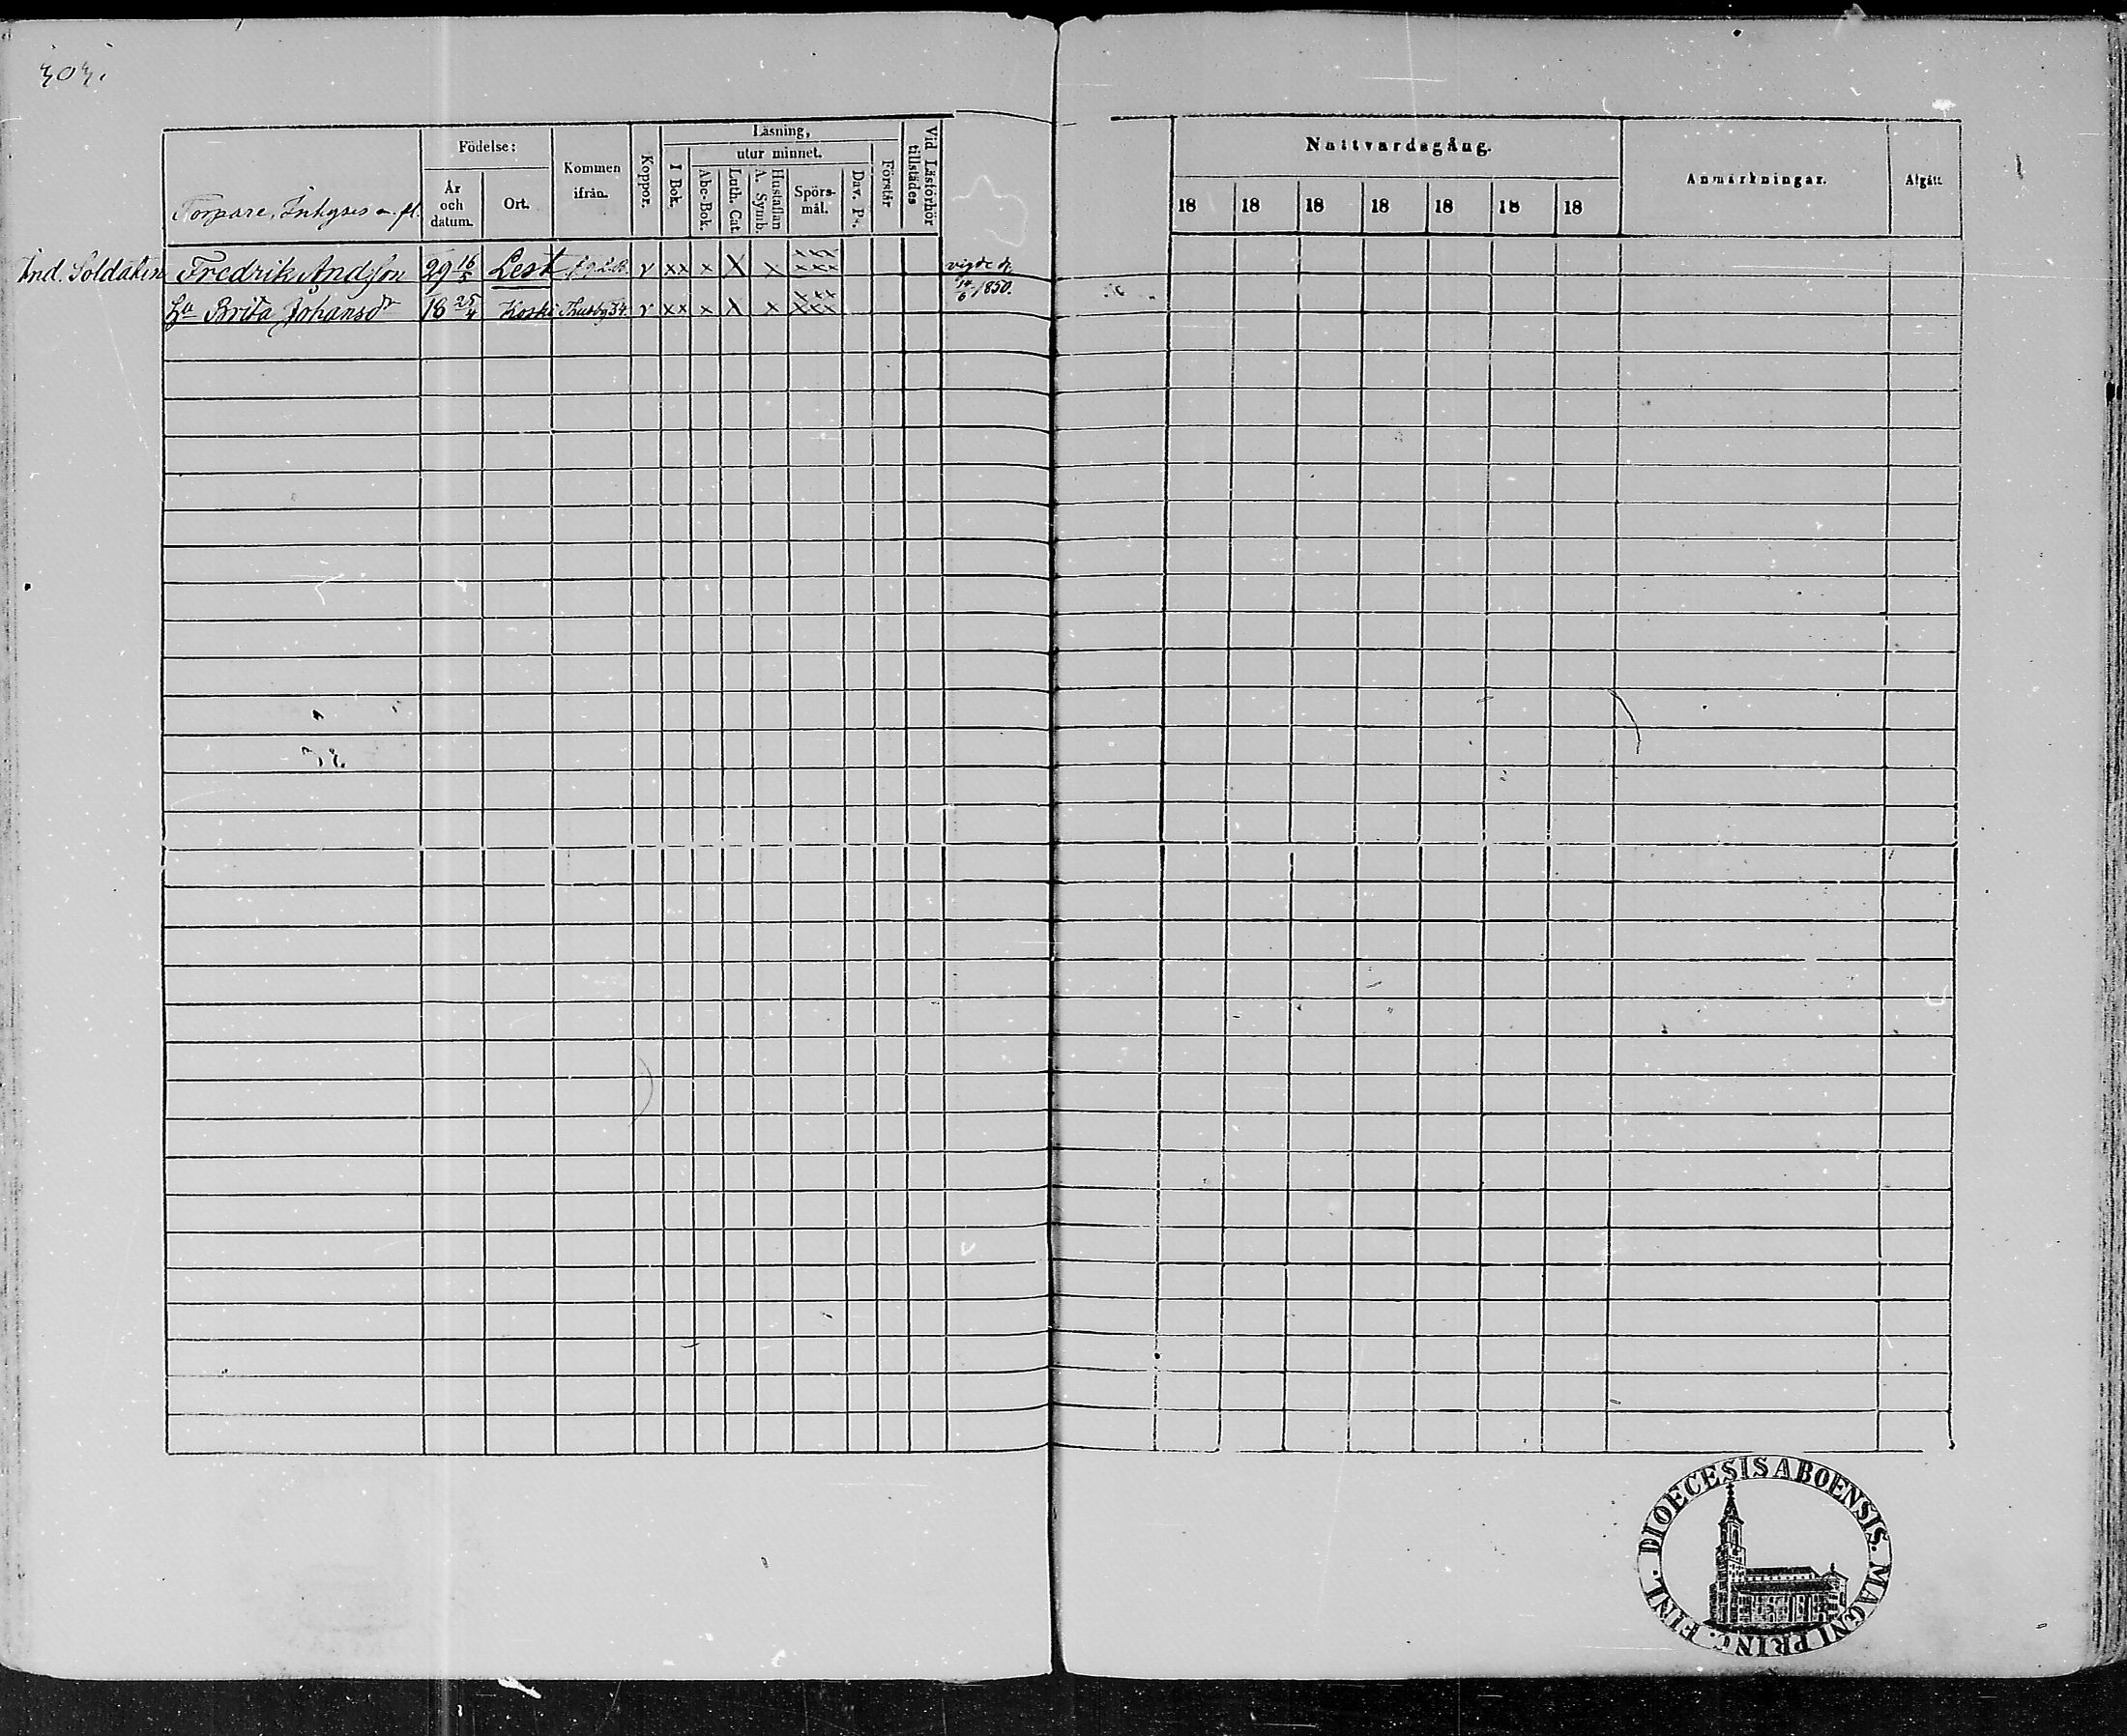 303.
Torpare, Inhyses m. fl.
Födelse:
År och datum.
Ort.
Kommen ifrån.
Koppor.
Läsning,
I Bok.
utur minnet.
Abc-Bok.
Luth. Cat.
Hustaflan
A. Symb.
Spörsmål.
Dav. Ps.
Förstår
Vid Läsförhör tillstädes
Nattvardsgång.
18 18 18 18 18 18 18
Anmärkningar.
Afgått.
Ind. Soldaten Fredrik Andsson 29 16/5 Lest v xx x X x xxx xxx vigde d.
14/6 1850.
Hu Brita Johansdr 18 25/4 Koski Thusby 34. v xx x X x xxx xxx
DIOECESIS ABOENSIS. MAGNI PRINC. FINL.